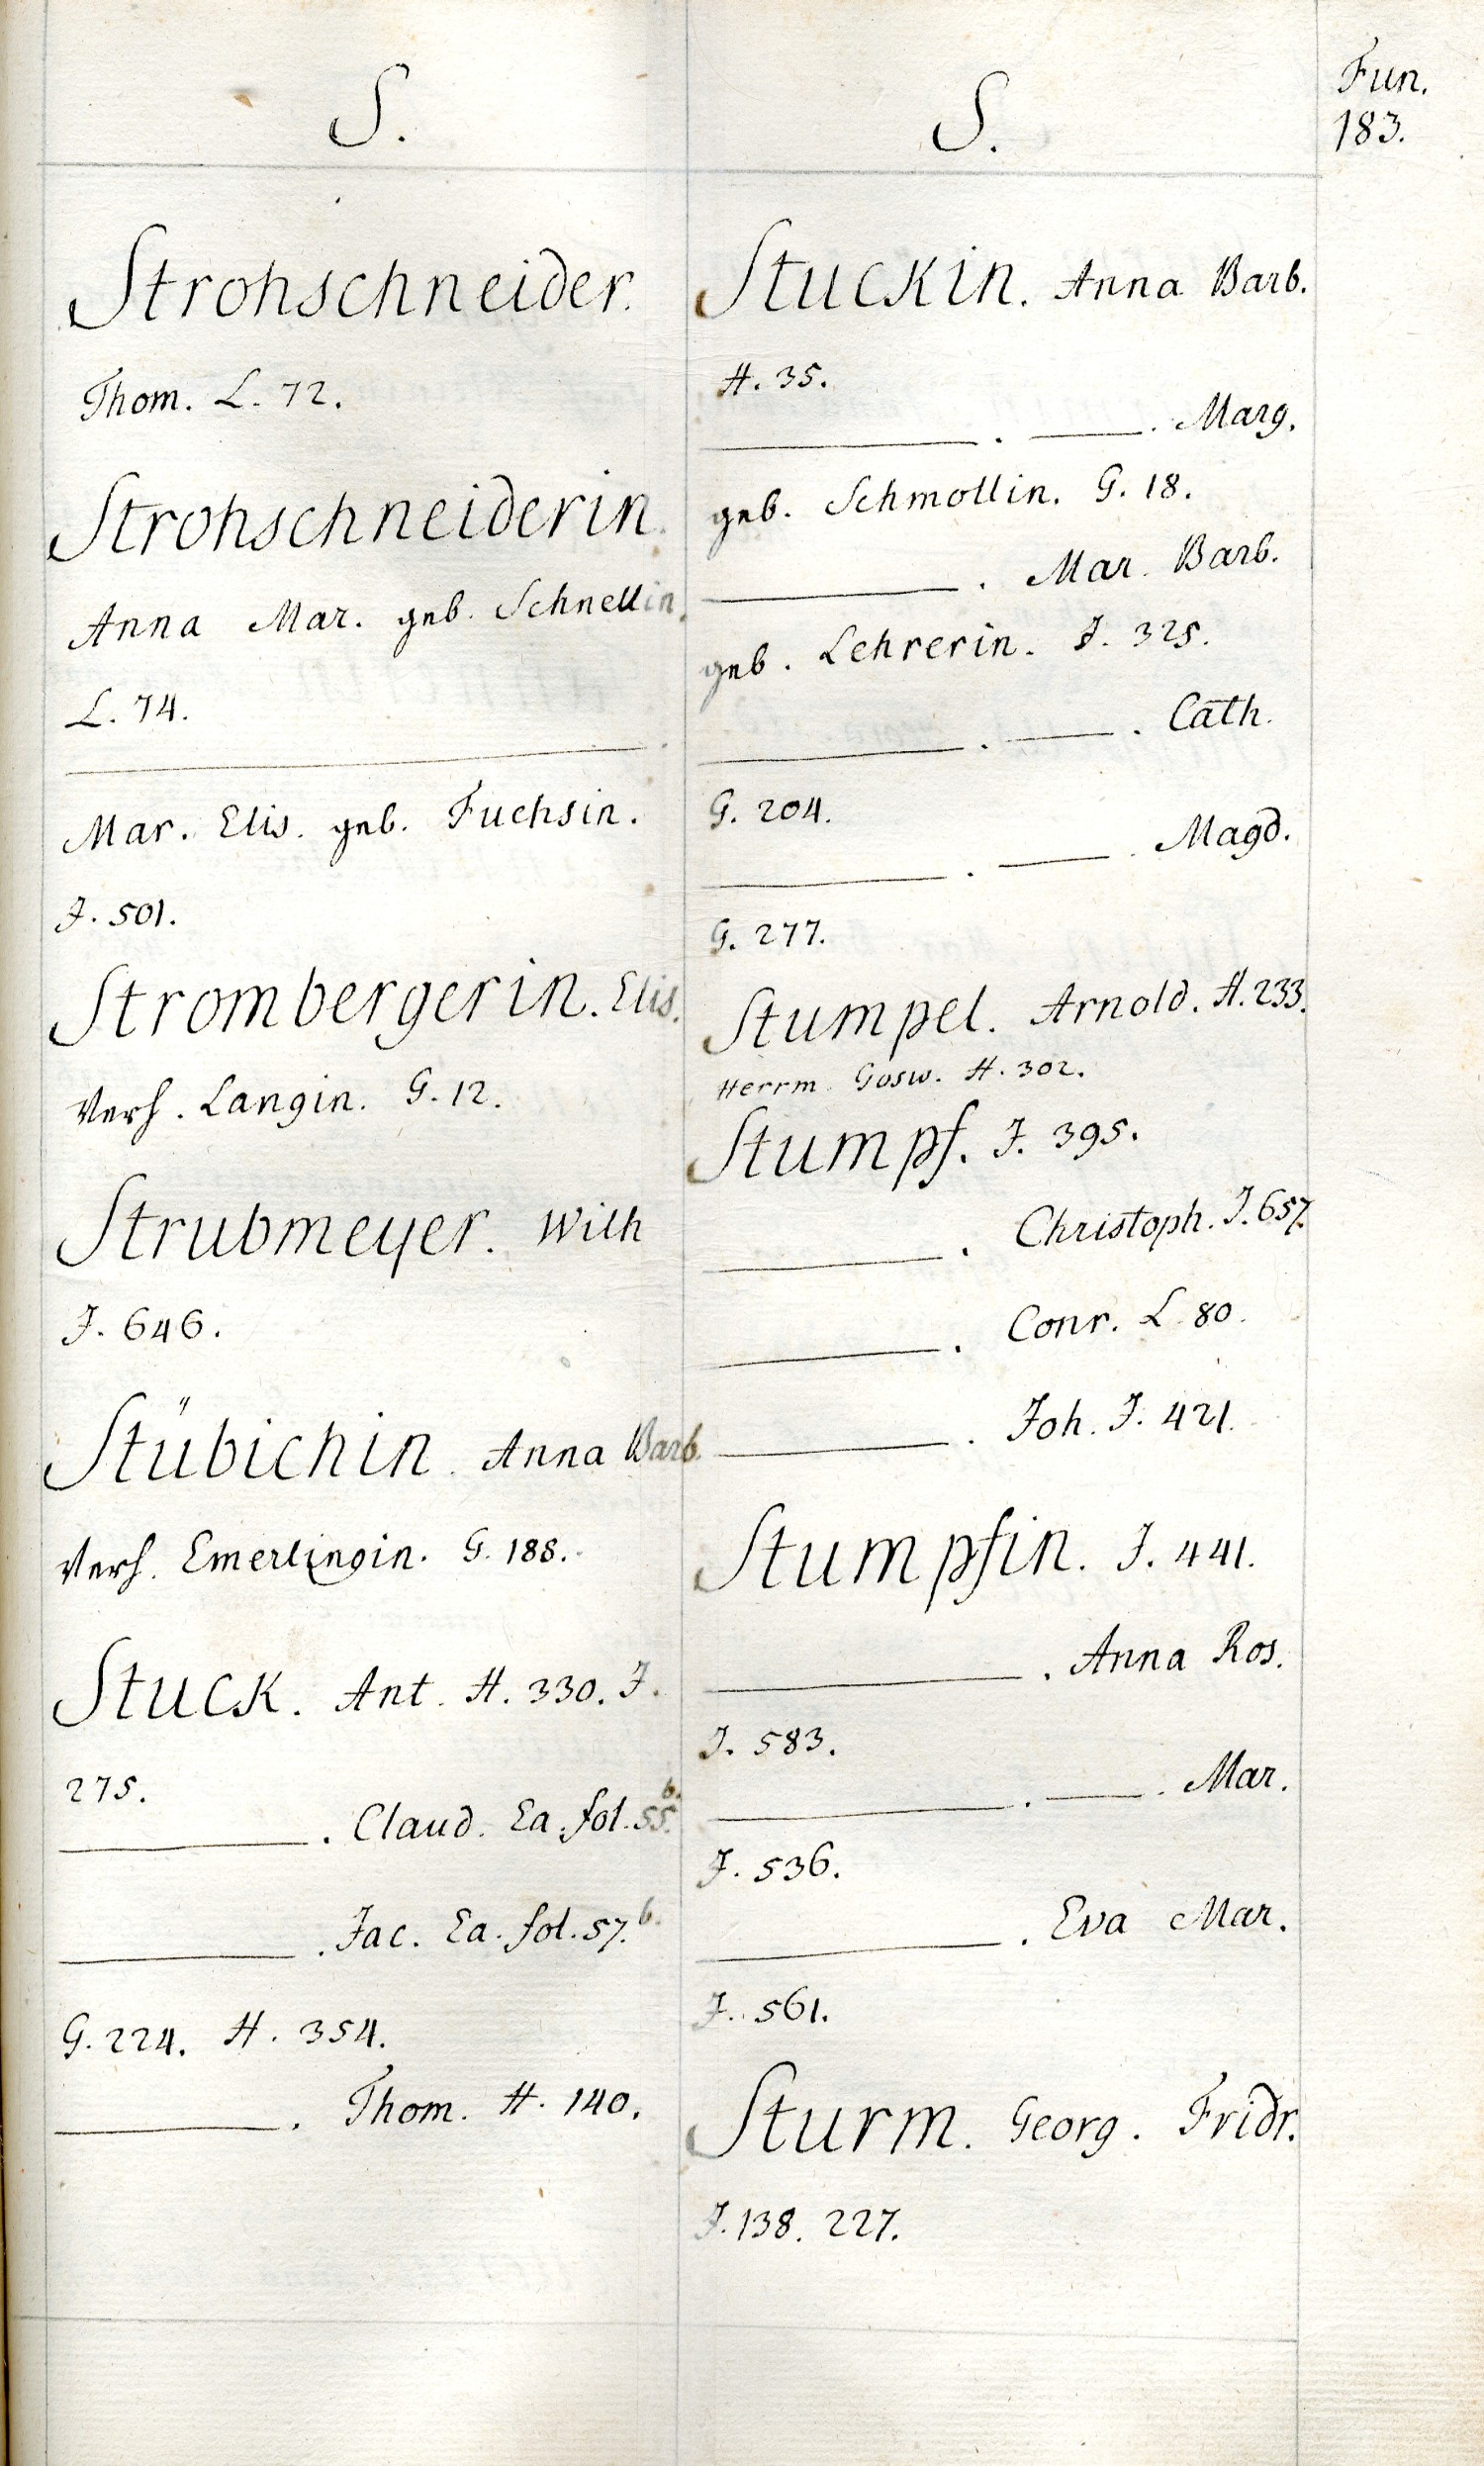 S.
Strohschneider.
Thom. L. 72.
Strohschneiderin.
Anna Mar. geb. Schnellin.
L. 74.
————.
Mar. Elis. geb. Fuchsin.
J. 501.
Strombergerin. Elis.
Verh. Langin. G. 12.
Strubmeyer. Wilh
J. 646.
Stübichin. Anna Barb.
Verh. Emerlingin. G. 188.
Stuck. Ant. H. 330. J.
275.
————. Claud. Ea. fol. 55.b.
————. Jac. Ea. fol. 57.b.
G. 224. H. 354.
————. Thom. H. 140.
S.
Stuckin. Anna Barb.
H. 35.
————. ——. Marg.
geb. Schmollin. G. 18.
————. Mar. Barb.
geb. Lehrerin. J. 325.
————. ——. Cath.
G. 204.
————. ——. Magd.
G. 277.
Stumpel. Arnold. H. 233.
Herrm. Gosw. H. 302.
Stumpf. J. 395.
————. Christoph. J. 657.
————. Conr. L. 80.
————. Joh. J. 421.
Stumpfin. J. 441.
————. Anna Ros.
J. 583.
————. ——. Mar.
J. 536.
————. Eva Mar.
J. 561.
Sturm. Georg. Fridr.
J. 138. 227.
Fun.
183.